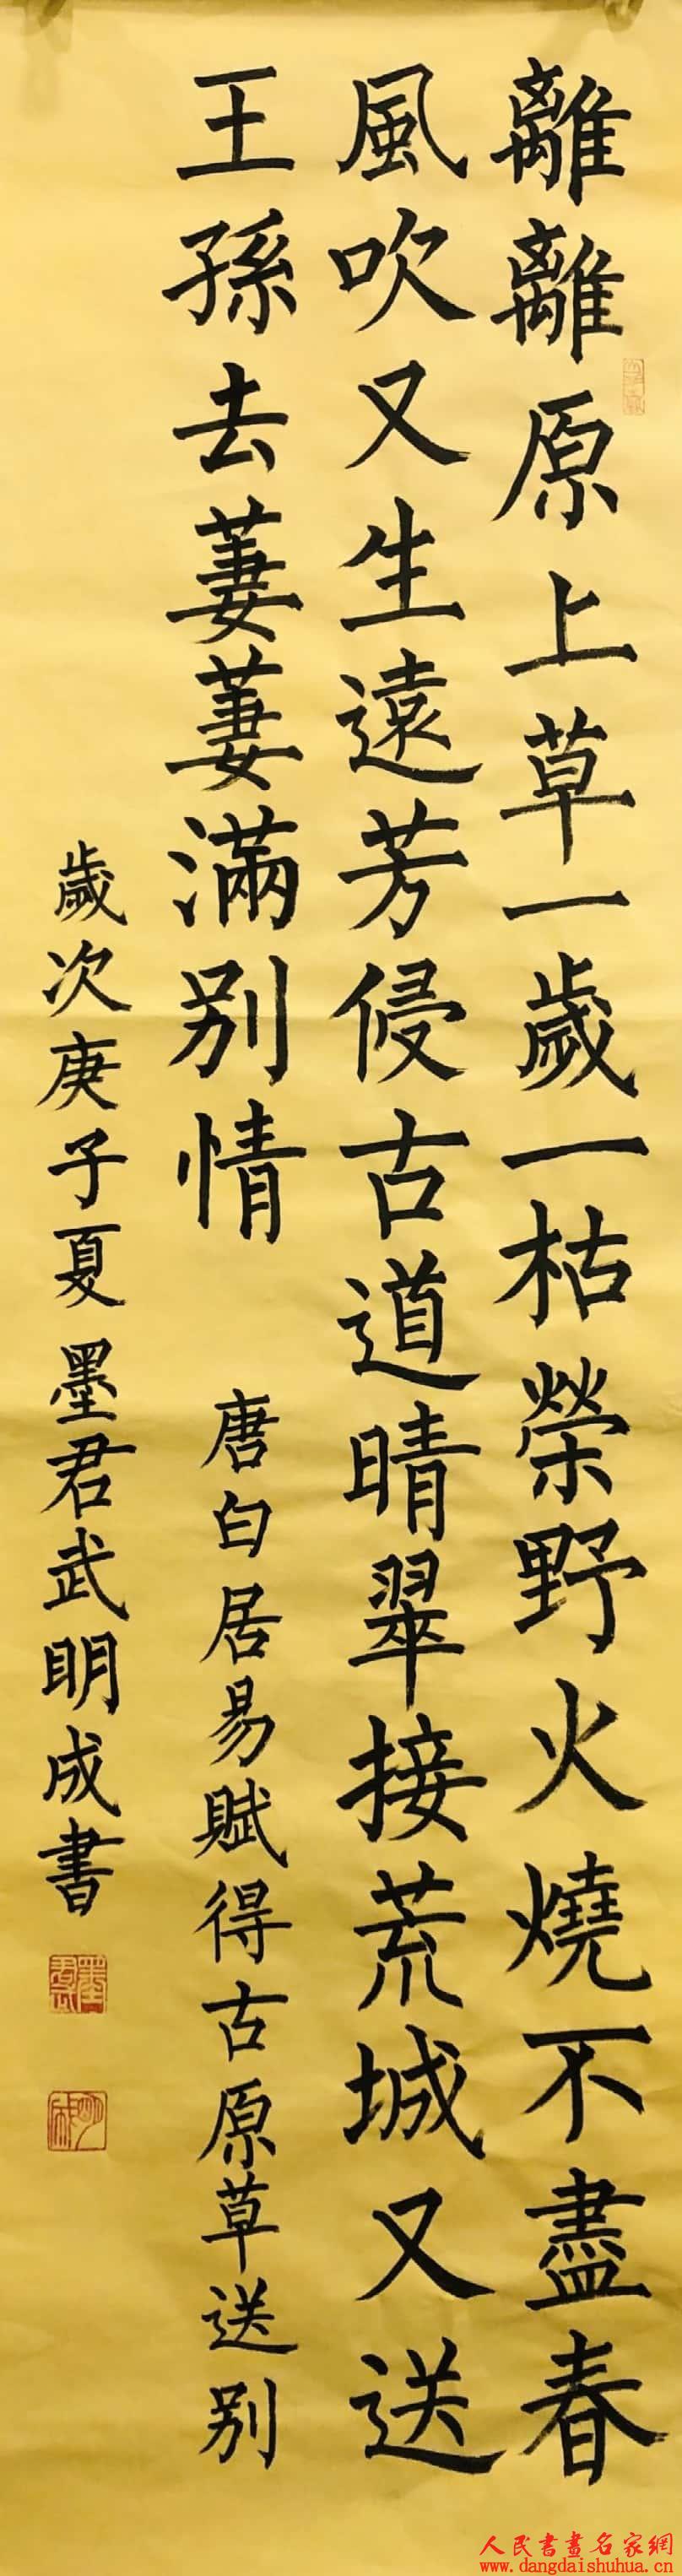 離離原上草一歲一枯榮野火燒不盡春
風吹又生遠芳侵古道晴翠接荒城又送
王孫去萋萋滿别情
唐白居易賦得古原草送别
歲次庚子夏墨君武明成書
人民書畫名家網
www.dangdaishuhua.cn